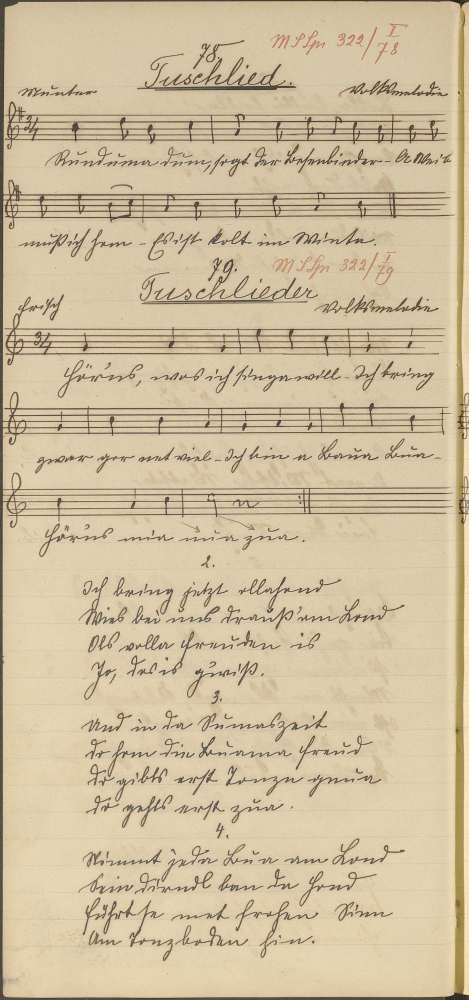 78.
MSSpr 322/I 78
Tuschlied.
Munter
Volksmelodie
3/4
Rundumadum, sagt der Besenbinder - A Weib
muß ich hom - Es ist kolt im Winta.
79.
MSSpr 322/I 79
Tuschlieder
Frisch
Volksmelodie
3/4
Hörns, wos ich singa will - Ich bring
zwar gor net viel - Ich bin a Baua Bua -
Hörns mia nua zua.
2.
Ich bring jetzt ollahond
Wies bei uns drauß' am Lond
Ols volla Freuden is
Jo, des is g'wiß.
3.
Und in da Sumaszeit
do hom die Buama Freud
Do gibts erst Tonze gnua
do gehts erst zua.
4.
Nimmt jeda Bua am Lond
Sein dirndl ban da Hond
Führt se met frohen Sinn
Am Tonzboden hin.